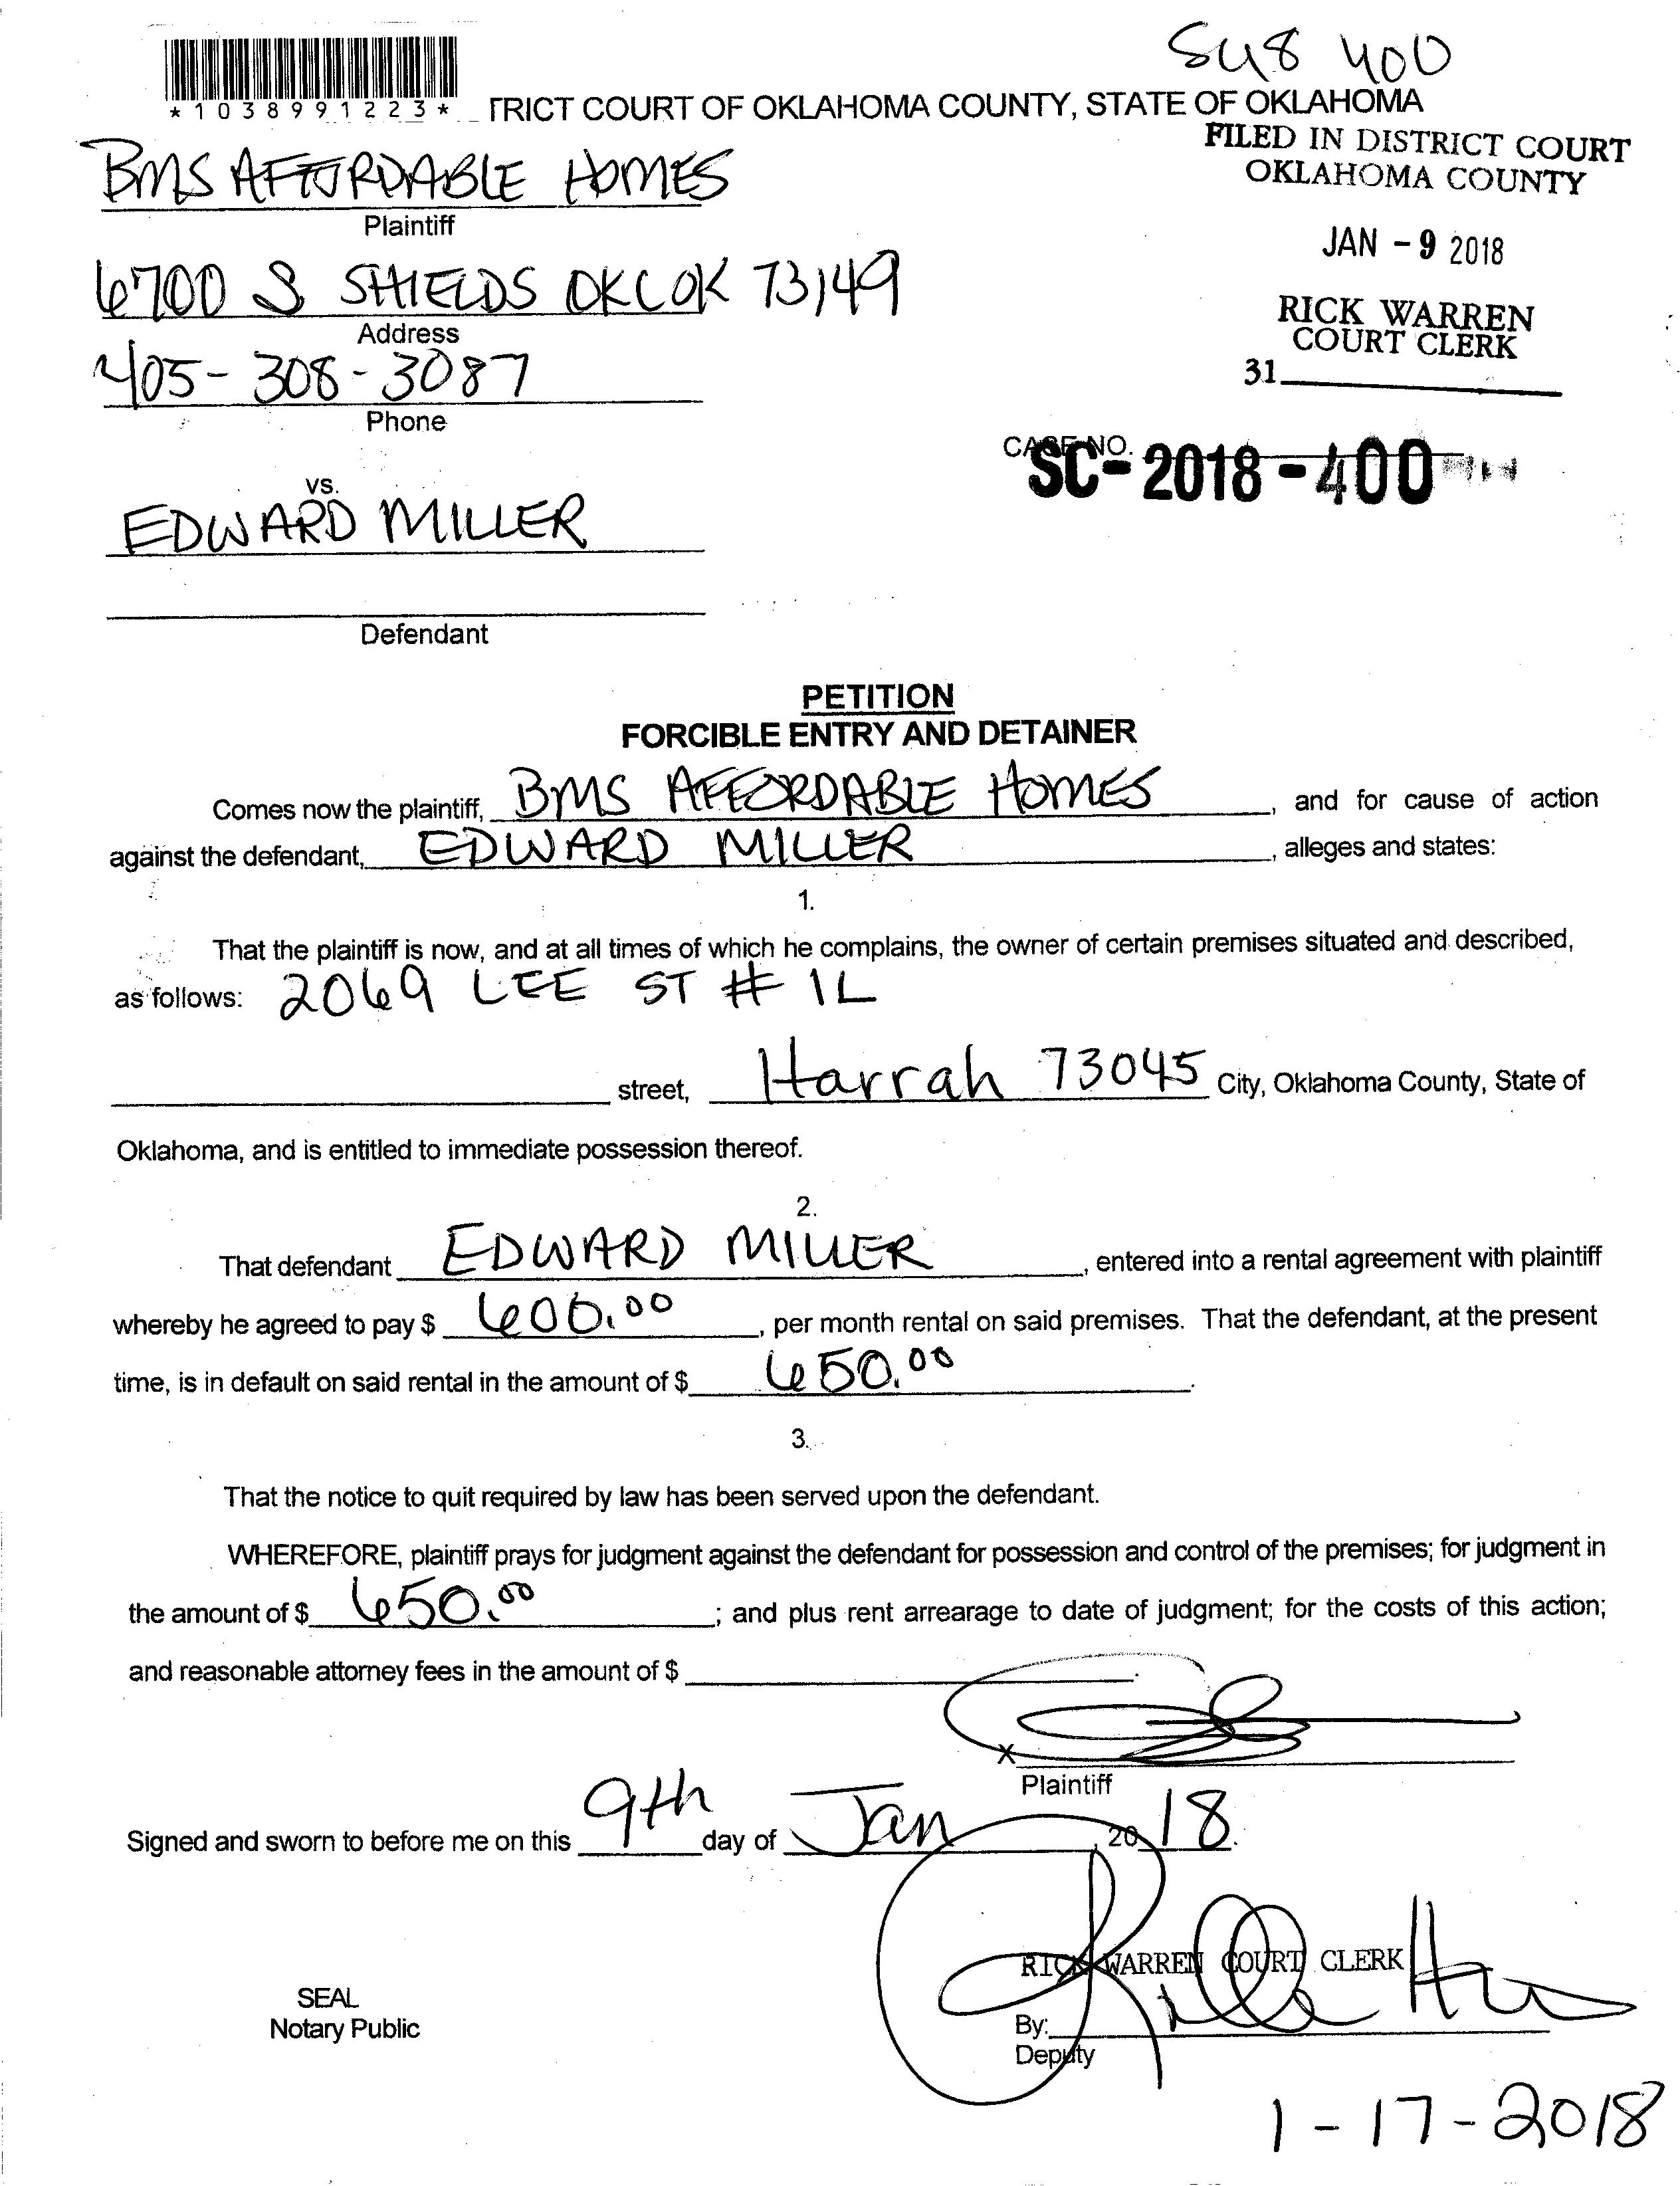 SC18 400
*1038991223* TRICT COURT OF OKLAHOMA COUNTY, STATE OF OKLAHOMA
FILED IN DISTRICT COURT
OKLAHOMA COUNTY
BMS AFFORDABLE HOMES
Plaintiff
JAN - 9 2018
6700 S SHIELDS OKC OK 73149
Address
RICK WARREN
COURT CLERK
31
405-308-3087
Phone
CASE NO.
SC- 2018 - 400
vs.
EDWARD MILLER
Defendant
PETITION
FORCIBLE ENTRY AND DETAINER
Comes now the plaintiff, BMS AFFORDABLE HOMES, and for cause of action
against the defendant, EDWARD MILLER, alleges and states:
1.
That the plaintiff is now, and at all times of which he complains, the owner of certain premises situated and described,
as follows: 2069 LEE ST # 1L
street, Harrah 73045 City, Oklahoma County, State of
Oklahoma, and is entitled to immediate possession thereof.
2.
That defendant EDWARD MILLER, entered into a rental agreement with plaintiff
whereby he agreed to pay $ 600.00, per month rental on said premises. That the defendant, at the present
time, is in default on said rental in the amount of $ 650.00.
3.
That the notice to quit required by law has been served upon the defendant.
WHEREFORE, plaintiff prays for judgment against the defendant for possession and control of the premises; for judgment in
the amount of $ 650.00; and plus rent arrearage to date of judgment; for the costs of this action;
and reasonable attorney fees in the amount of $
X
Plaintiff
Signed and sworn to before me on this 9th day of Jan, 2018.
RICK WARREN COURT CLERK
SEAL
Notary Public
By:
Deputy
1-17-2018